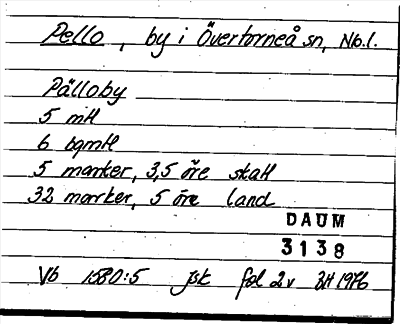 Pello, by i Övertorneå sn, Nb.l.
Pälloby
5 mtl
6 bgmtl
5 marker, 3,5 öre skatt
32 marker, 5 öre land
DAUM
3138
Vb 1580:5 jsk fol 2v 1976